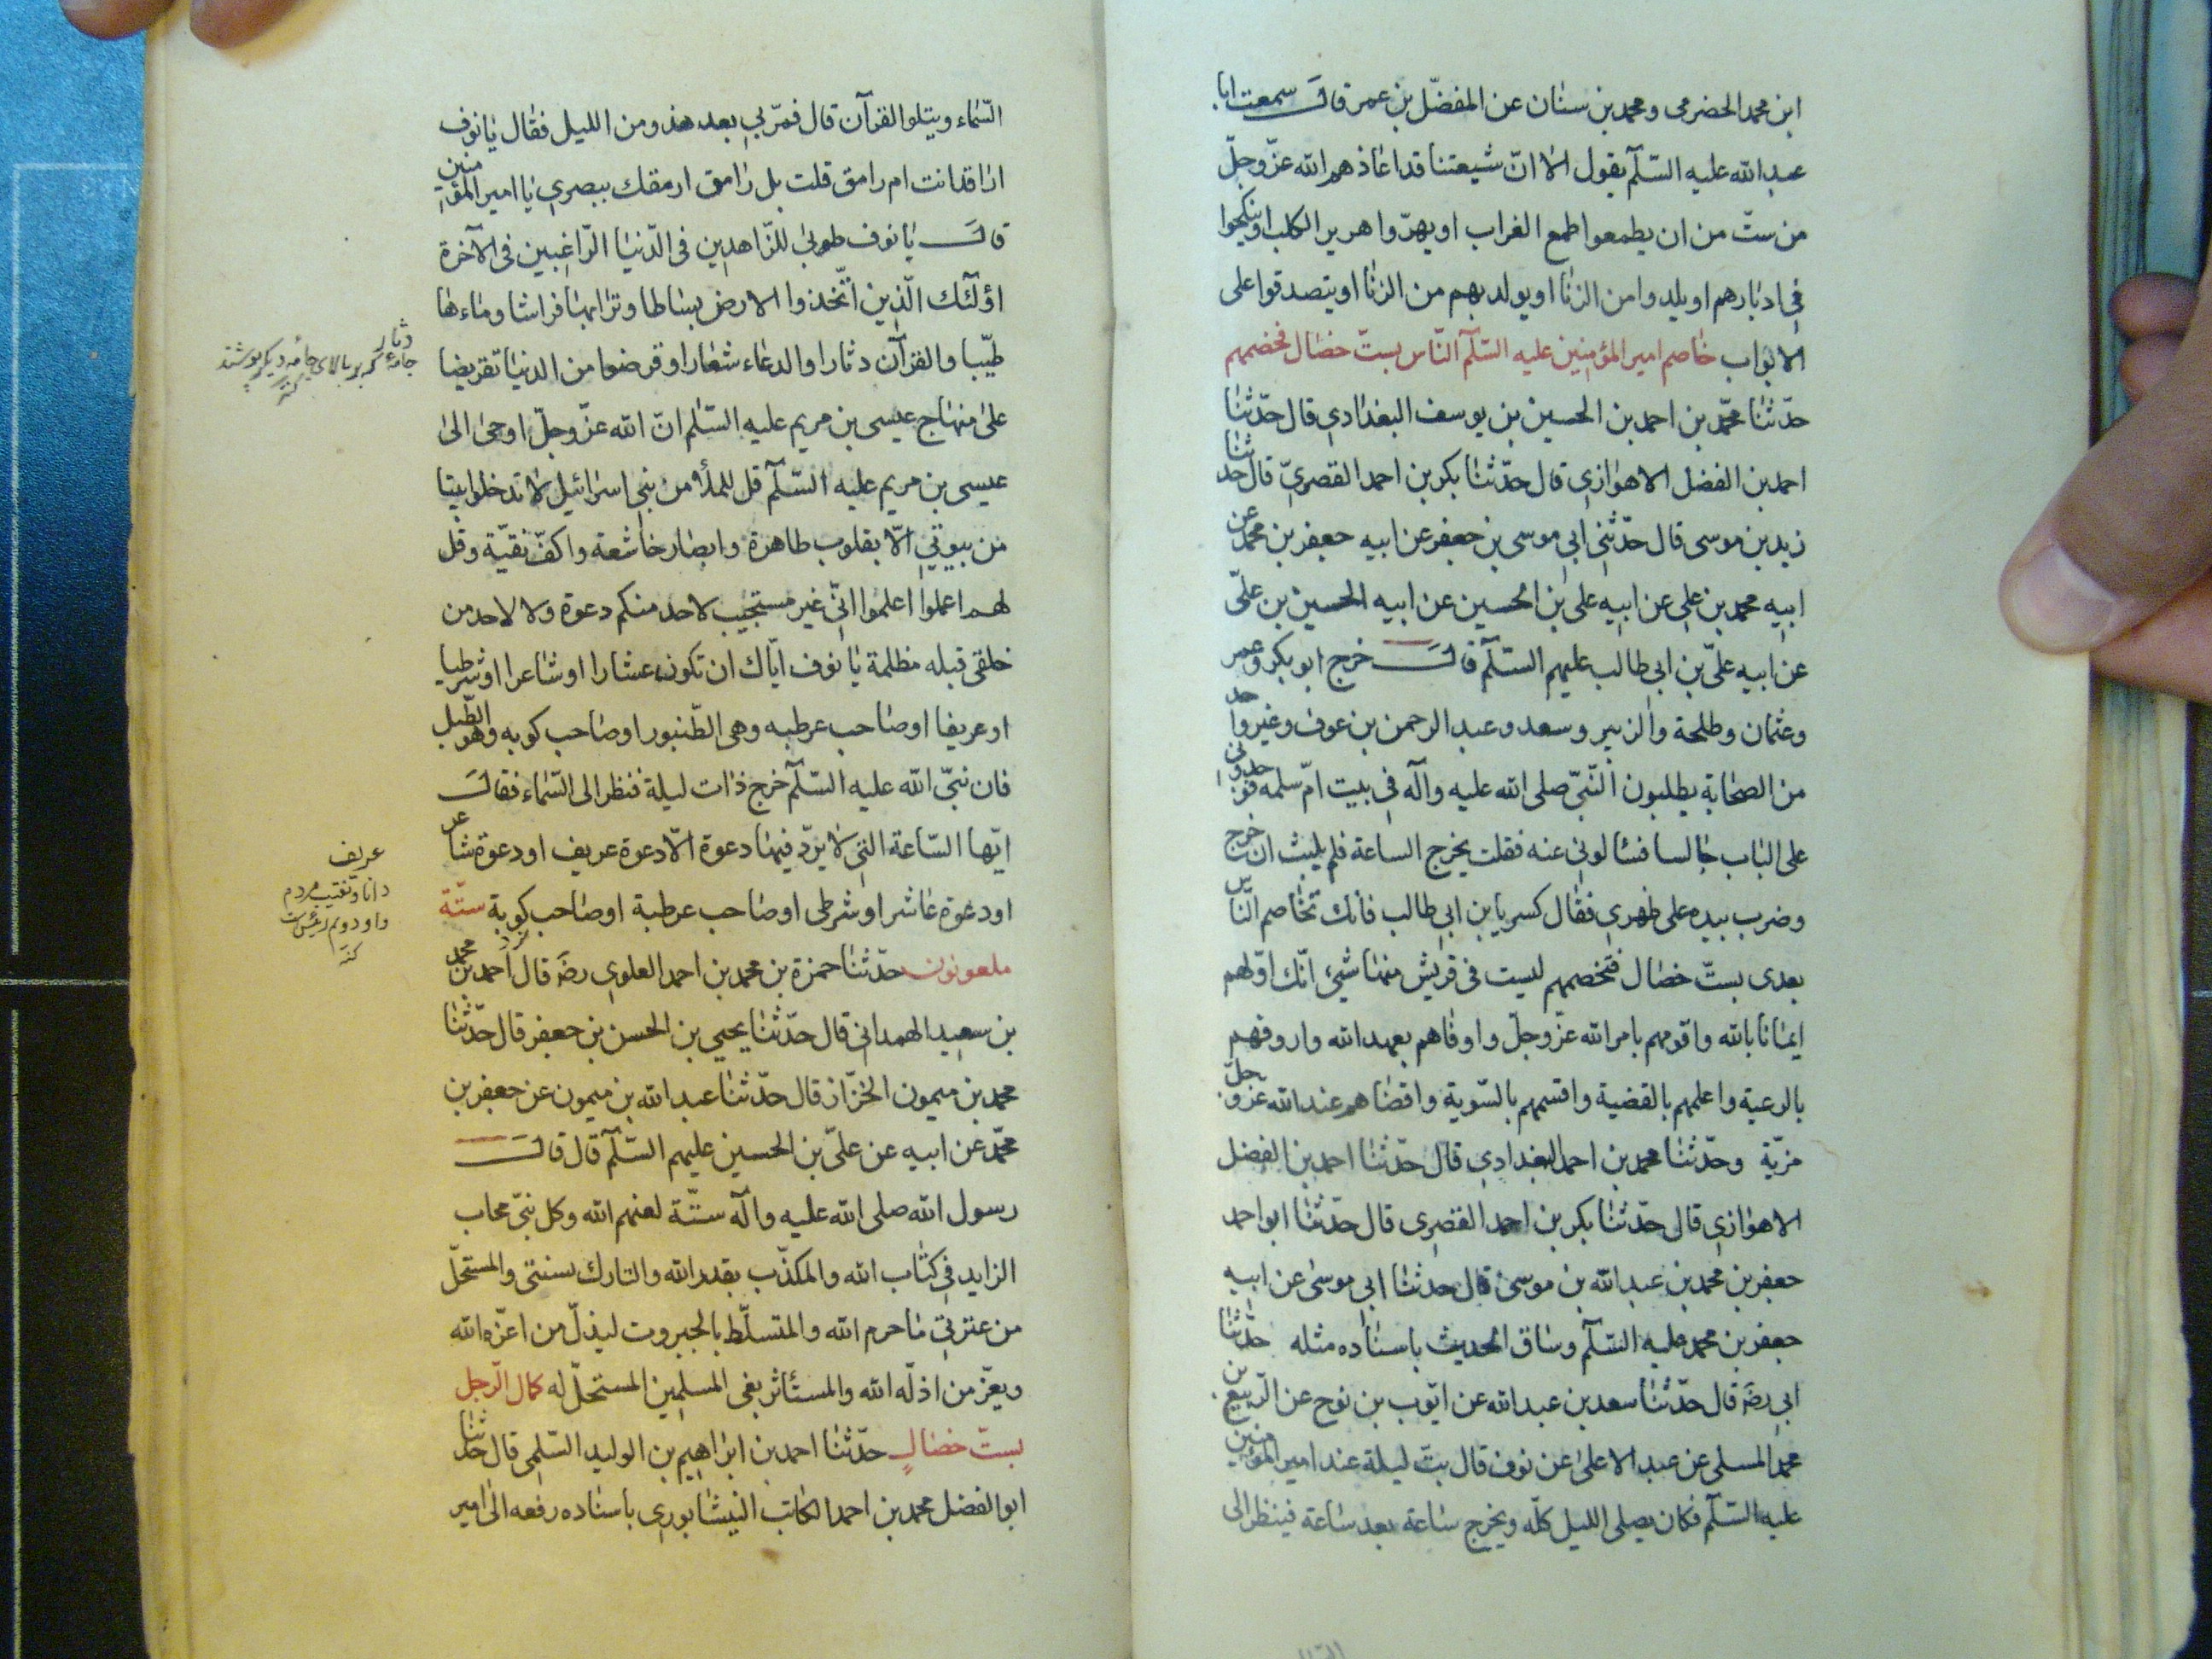 ابن محمد الحضرمى ومحمد بن سنان عن المفضّل بن عمر قال سمعت ابا
عبد الله عليه السّلم يقول الا انّ شيعتنا قد اعاذهم الله عزّ وجلّ
من ستّ من ان يطمعوا طمع الغراب او يهرّوا هرير الكلب او ينكحوا
فى ادبارهم او يلدوا من الزنا او يولد بهم من الزنا او يتصدقوا على
الابواب خاصم امير المؤمنين عليه السّلم النّاس بستّ خصال فخصمهم
حدّثنا محمّد بن احمد بن الحسين بن يوسف البغدادي قال حدّثنا
احمد بن الفضل الاهوازي قال حدّثنا بكر بن احمد القصريّ قال حدثنا
زيد بن موسى قال حدّثنى ابى موسى بن جعفر عن ابيه جعفر بن محمد عن
ابيه محمد بن على عن ابيه على بن الحسين عن ابيه الحسين بن علىّ
عن ابيه علىّ بن ابى طالب عليهم السّلم قال خرج ابو بكر وعمر
وعثمان وطلحة والزبير وسعد وعبد الرحمن بن عوف وغير واحد
من الصحابة يطلبون النّبىّ صلى الله عليه وآله فى بيت امّ سلمه فوجدونى
على الباب جالسا فسئالونى عنه فقلت يخرج الساعة فلم يلبث ان خرج
وضرب بيده على ظهرى فقال كسر يا بن ابى طالب فانك تخاصم النّاس
بعدى بستّ خصال فتخصمهم ليست فى قريش منها شيئ انّك اوّلهم
ايمانا بالله واقومهم بامر الله عزّ وجلّ واوفاهم بعهد الله واروفهم
بالرعية واعلمهم بالقضية واقسمهم بالسّوية واقضاهم عند الله عزّ وجلّ
مزيّة وحدّثنا محمد بن احمد البغدادي قال حدّثنا احمد بن الفضل
الاهوازى قال حدّثنا بكر بن احمد القصرى قال حدّثنا ابو احمد
جعفر بن محمد بن عبد الله بن موسى قال حدثنا ابى موسى عن ابيه
جعفر بن محمد عليه السّلم وساق الحديث باسناده مثله حدّثنا
ابى رضه قال حدّثنا سعد بن عبد الله عن ايّوب بن نوح عن الرّبيع بن
محمد المسلى عن عبد الاعلى عن نوف قال بتّ ليلة عند امير المؤمنين
عليه السّلم فكان يصلى الليل كلّه ويخرج ساعة بعد ساعة فينظر الى
السّماء ويتلو القرآن قال فمرّ بى بعد هدو من الليل فقال يا نوف
اراقد انت ام رامق قلت بل رامق ارمقك ببصرى يا امير المؤمنين
قال يا نوف طوبى للزّاهدين فى الدّنيا الرّاغبين فى الآخرة
اولئك الّذين اتّخذوا الارض بساطا وترابها فراشا وماءها
طيّبا والقرآن دثارا والدعاء شعارا وقرضوا من الدنيا تقريضا
على منهاج عيسى بن مريم عليه السّلم انّ الله عزّ وجلّ اوحى الى
عيسى بن مريم عليه السّلم قل للملأ من بنى اسرائيل لا تدخلوا بيتا
من بيوتى الّا بقلوب طاهرة وابصار خاشعة واكفّ نقيّة وقل
لهم اعملوا اعلموا انّى غير مستجيب لاحد منكم دعوة ولا لاحد من
خلقى قبله مظلمة يا نوف ايّاك ان تكون عشارا او شاعرا او شرطيا
او عريفا او صاحب عرطبه وهى الطّنبور او صاحب كوبه وهو الطّبل
فان نبىّ الله عليه السّلم خرج ذات ليلة فنظر الى السّماء فقال
ايّها السّاعة التى لا يردّ فيها دعوة الّا دعوة عريف او دعوة شاعر
او دعوة عاشر او شرطى او صاحب عرطبة او صاحب كوبة ستّة
ملعونون حدّثنا حمزة بن محمد بن احمد العلوى رضه قال احمد بن محمد
بن سعيد الهمدانى قال حدّثنا يحيى بن الحسن بن جعفر قال حدّثنا
محمد بن ميمون الخزّاز قال حدّثنا عبد الله بن ميمون عن جعفر بن
محمّد عن ابيه عن علىّ بن الحسين عليهم السّلم قال قال
رسول الله صلى الله عليه وآله ستّة لعنهم الله وكل نبىّ مجاب
الزايد فى كتاب الله والمكذّب بقدر الله والتارك بسنتى والمستحلّ
من عترتى ما حرم الله والمتسلّط بالجبروت ليذلّ من اعزّه الله
ويعزّ من اذلّه الله والمستأثر بفى المسلمين المستحلّ له كمال الرّجل
بستّ خصال حدّثنا احمد بن ابراهيم بن الوليد السّلمى قال حدثنا
ابو الفضل محمد بن احمد الكاتب النيشابورى باسناده رفعه الى امير
دثار
جامهٔ كه بر بالاى جامه ديكر پوشند
كنز
عريف
دانا ونقيب مردم
كنز